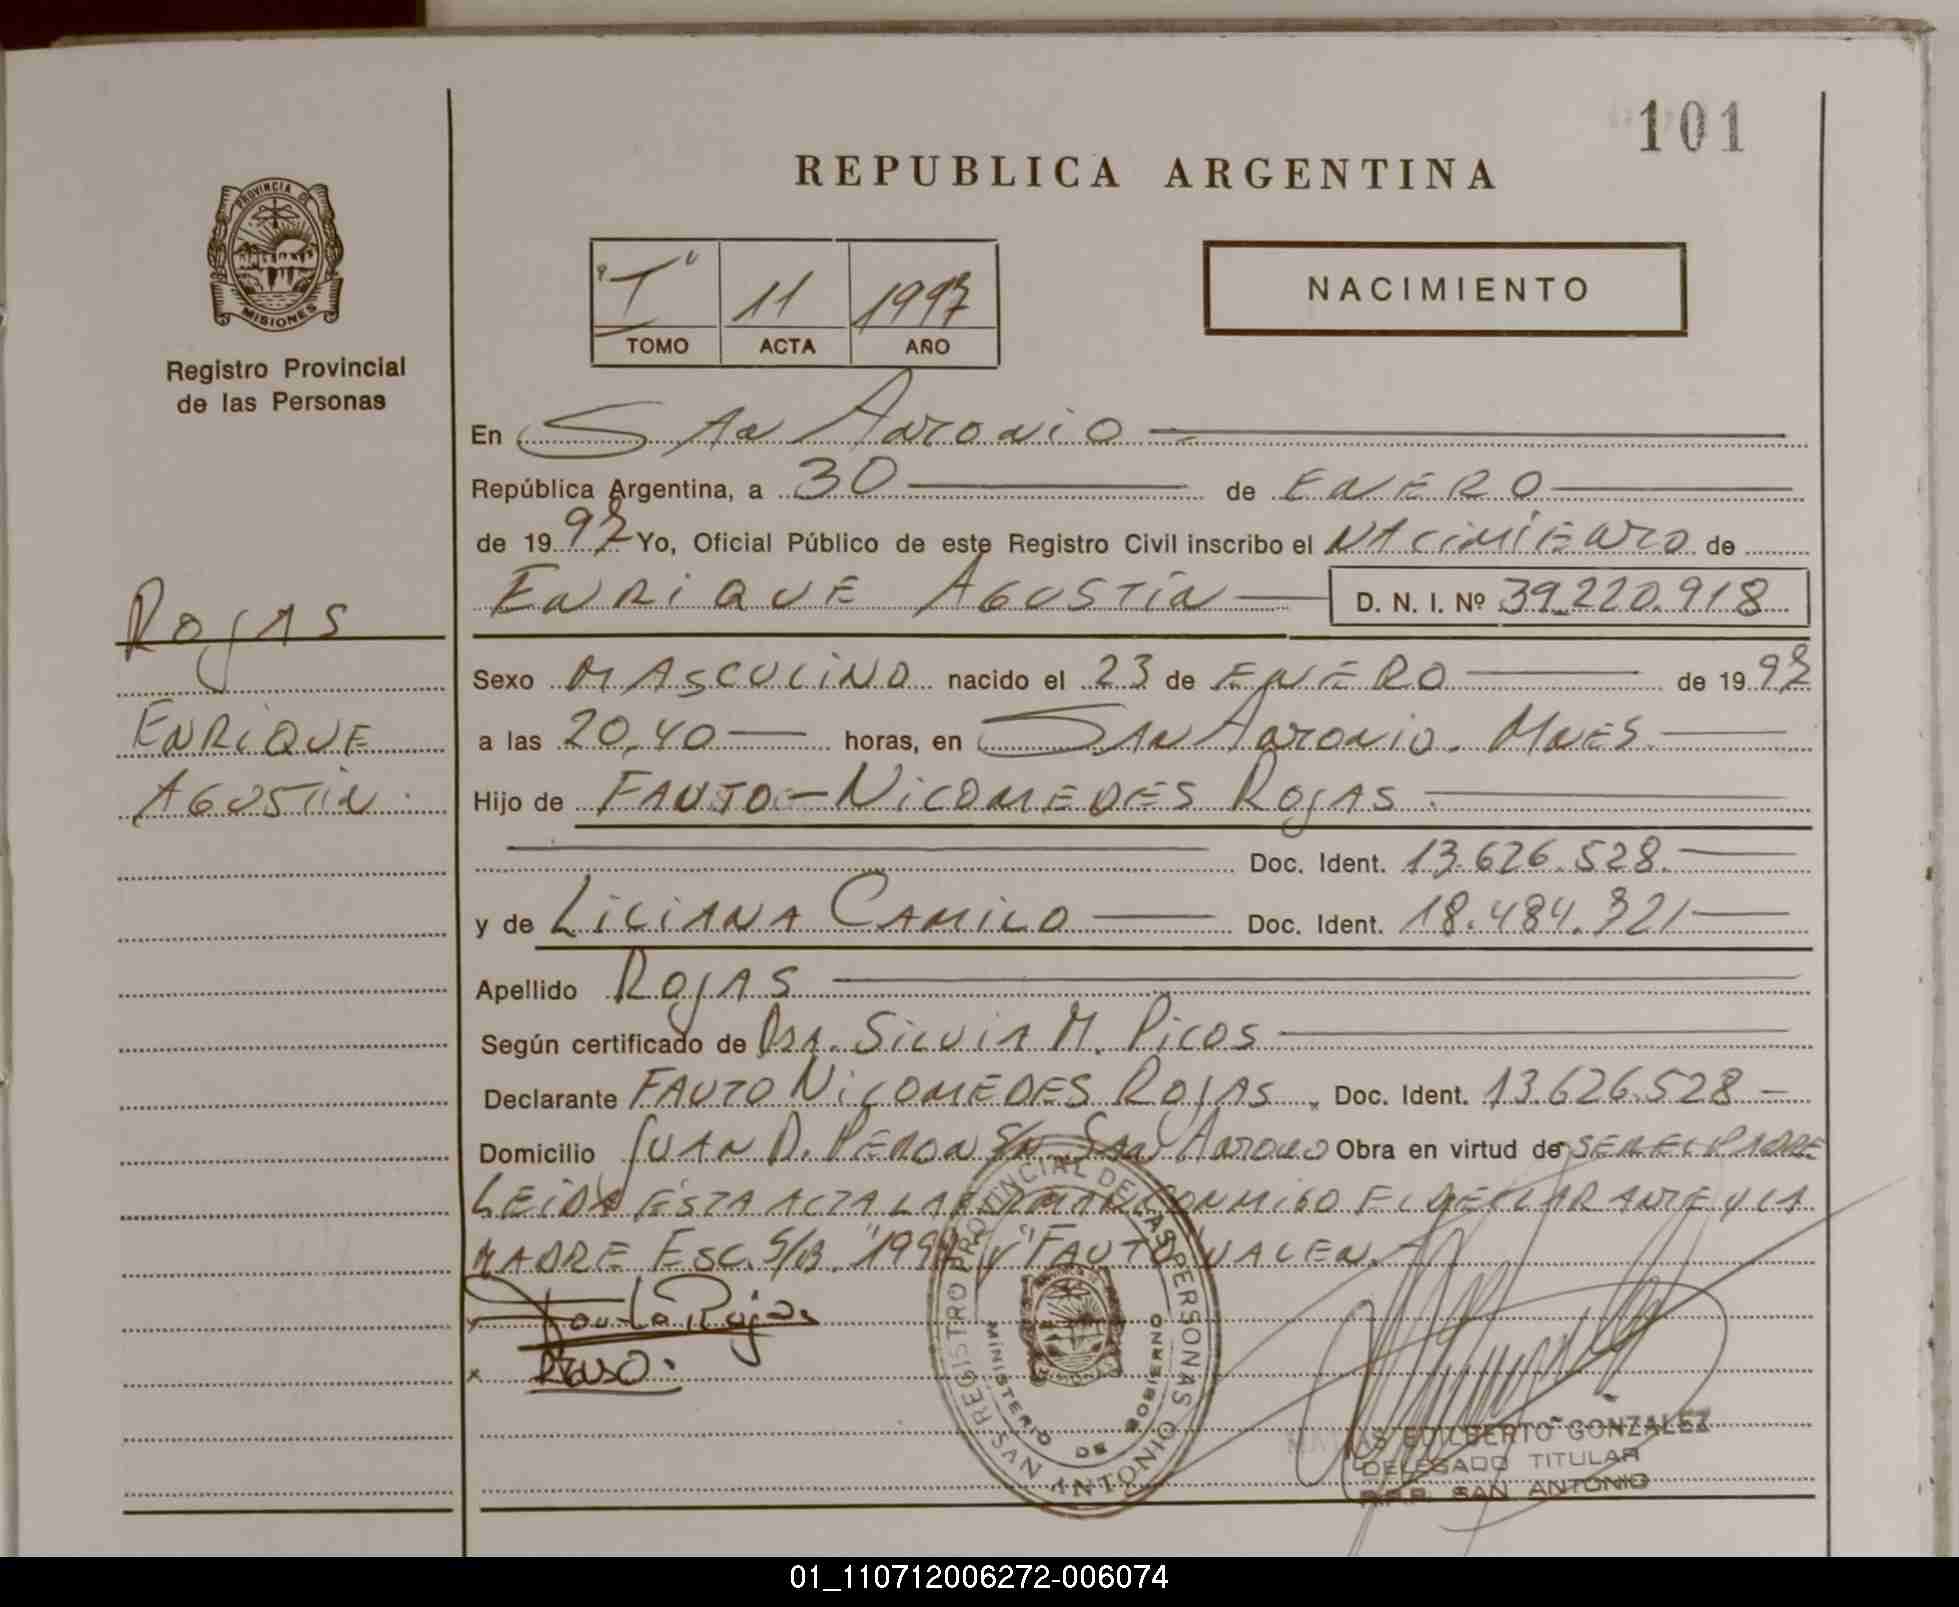 101
REPUBLICA ARGENTINA
PROVINCIA DE
MISIONES
Registro Provincial
de las Personas
"T" 11 1997
TOMO ACTA AÑO
NACIMIENTO
En San Antonio
República Argentina, a 30 de ENERO
de 1997 Yo, Oficial Público de este Registro Civil inscribo el NACIMIENTO de
ENRIQUE AGUSTÍN D. N. I. Nº 39.220.918
ROJAS
ENRIQUE
AGUSTÍN.
Sexo MASCULINO nacido el 23 de ENERO de 1997
a las 20,40 horas, en SAN ANTONIO. MNES.
Hijo de FAUTO - NICOMEDES ROJAS.
Doc. Ident. 13.626.528.
y de LILIANA CAMILO Doc. Ident. 18.484.321
Apellido ROJAS
Según certificado de DRA. SILVIA M. PICOS
Declarante FAUTO NICOMEDES ROJAS. Doc. Ident. 13.626.528 -
Domicilio JUAN D. PERON S/N SAN ANTONIO Obra en virtud de SER EL PADRE
LEIDA ESTA ACTA LA FIRMAN CONMIGO EL DECLARANTE Y LA
MADRE ESC. S/B. "1997" Y "FAUTO" VALEN.
Fauto Rojas
REGISTRO PROVINCIAL DE LAS PERSONAS
SAN ANTONIO
MINISTERIO DE GOBIERNO
EDILBERTO GONZALEZ
DELEGADO TITULAR
R.P.P. SAN ANTONIO
01_110712006272-006074